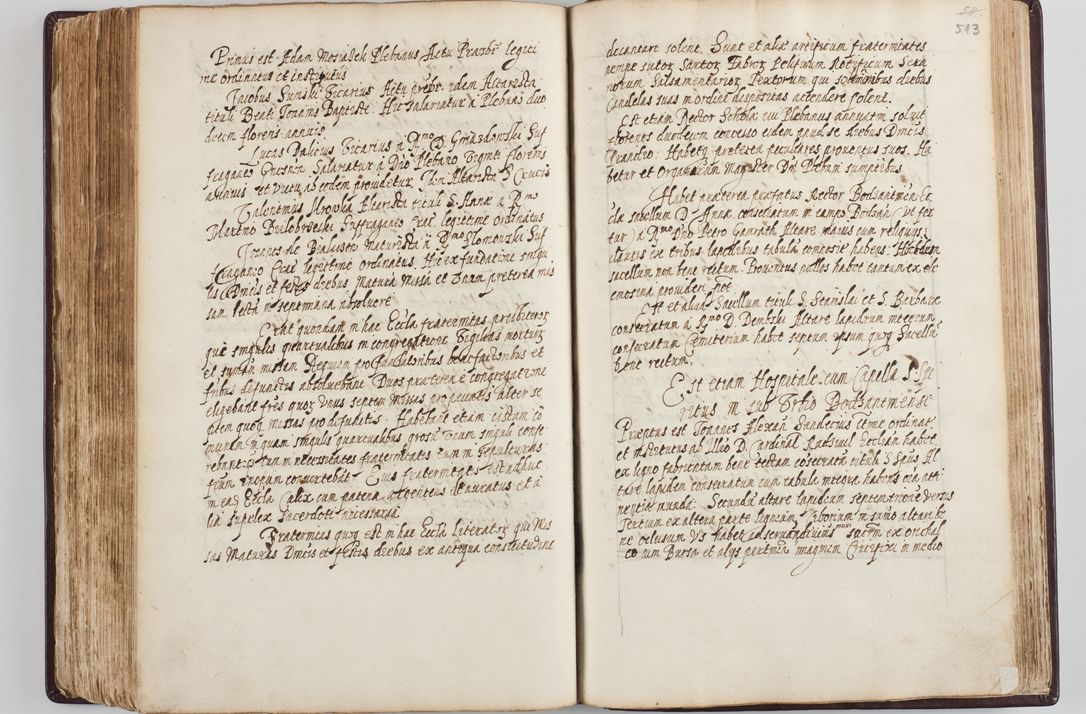 Primus est Adam Mosiadek Plebanus Actu Praesb: legiti
me ordinatus et institutus
Jacobus Sumski Vicarius Actu presbr: idem Altarista
tituli Beati Joannis Baptistae. Hic salariatur a Plebano duo
decim florens: annuis.
Lucas Vicarius a Rmo D. Suf
fraganeo Gnesnen Salariatur a Dno Plebano viginti florens
annuis et victu ab eodem providetur. Idem Altarista S. Crucis
Valentinus Mrowka Altarista tituli S. Annae a Rmo
Martino Bialobrzeski Suffraganeo Crac: legittime ordinatus
Joannes de Maturista a Rmo Slomowski Suf
fraganeo Crac: legitime ordinatus. Hic ex fundatione singu
lis Dnicis et festis diebus Maturam missam et unam praeterea mis
sam lectam in septimana absolvere
Erat quondam in hac Eccla fraternitas presbiteror
quae singulis quartualibus in congregatione Vigilias mortuor
et unam missam Requiem pro fundatoribus benefactoribus et
fribus defunctis absolvebant. Duos praeterea e congregatione
eligebant fres quor unus septem missas pro peccatis, alter se
ptem quoq missas pro defunctis. Habebant etiam cistam co
munem in quam singulis quartualibus grossum unum singuli confe
rebant is tum in necessitates fraternitatis tum in sepulturas
frum inopum convertebat. Eius fraternitatis est adhuc
in ea Eccla Calix cum patena argenteus deauratus et a
lia supelex sacerdoti necessaria
Fraternitas quoq est in hac Eccla Literator qui Mis
sas Maturas Dnicis et festis diebus ex antiqua consuetudine
513
decantare solent. Sunt et aliae artificum fraternitates
nempe sutor Sartor Fabror Pelificum
Salsamentarior Textorum qui solennibus diebus
Candelas suas in ordine dispositas accendere solent.
Est etiam Rector Scholae cui Plebanus annuatim solvit
florenos duodecim concesso eidem quoad se diebus Dnicis
Prandio. Habetq praeterea peculiares proventus suos. Ha
betur et Organarum Magister Dni Plebani sumptibus.
Habet praeterea praefatus Rector Bodsantinen Ec
clae sacellum D. Annae consecratum in campo Bodsan: (ut fer
tur) a Rmo Dno Petro Altare maius cum reliquiis
clausis ex tribus lapidibus tabula contectum habens. Hoc autem
sacellum non bene tectum. Proventus nullos habet tantum ex ele
emosina provideri pot:
Est et aliud Sacellum tituli S. Stanislai et S. Barbarae
consecratum a Rmo D. Dembski Altare lapideum integrum
consecratum Cimiterium habet septum ipsum quoq Sacellum
bene tectum.
Est etiam Hospitale cum Capella S. Spi
ritus in sub Urbio Bodsantinensi
Praepositus est Joannes Alexan Sandecius rittae ordinat:
et institutus ab Illmo D. Cardinal Radsivil Ecclam habet
ex ligno fabricatam bene tectam cosecratam tituli S. Spus Al
tare lapideum consecratum cum tabula integra habens oia atti
nentia munda. Secundum altare lapideum septemtrionem versus
Tertium ex altera parte ligneum, Ciborium in summo altari be
ne oclusum VS habet adservandivinis mum sacrm ex orichal
co cum Bursa et aliis pertinen magnum Crucifixi in medio